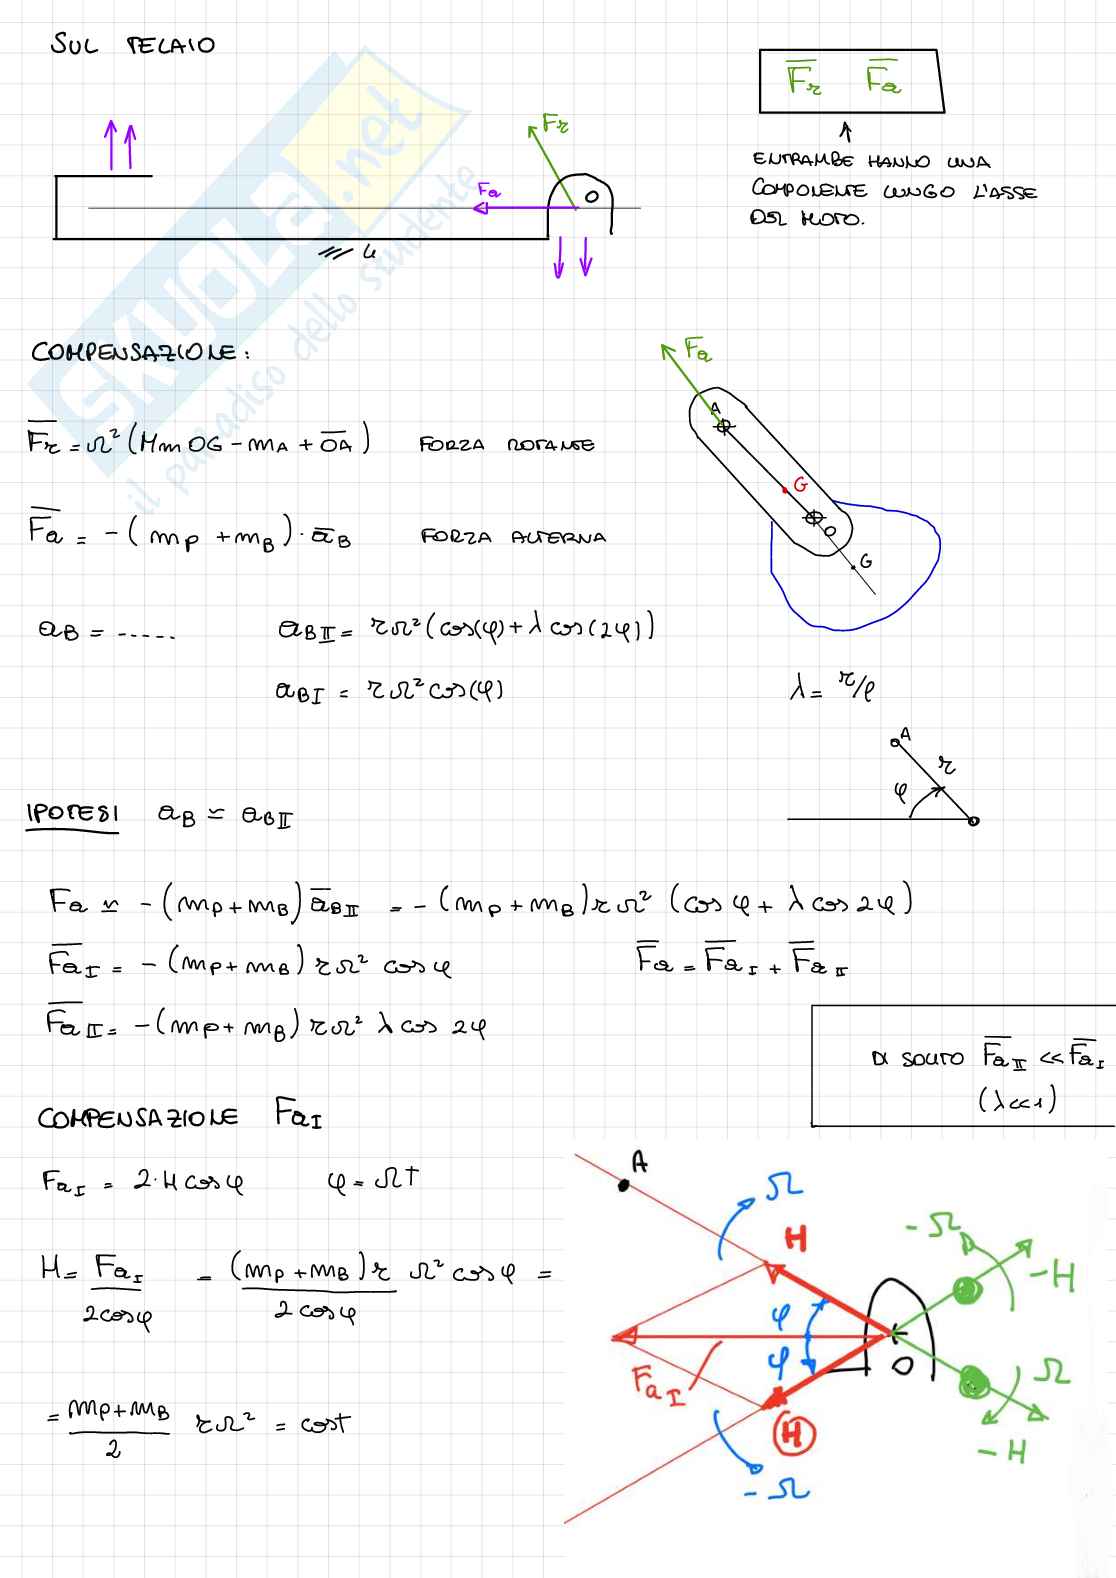 SUL TELAIO
F̅r F̅a
Fr
Fa
O
4
ENTRAMBE HANNO UNA
COMPONENTE LUNGO L'ASSE
DEL MOTO.
SKUOLA.net
il paradiso dello studente
COMPENSAZIONE:
Fa
A
G
O
G
F̅r = Ω² (Mm OG - mA + O̅A̅) FORZA ROTANTE
F̅a = - (mP + mB) · a̅B FORZA ALTERNA
aB = ..... aBII = rΩ² (cos(φ) + λ cos(2φ))
aBI = rΩ² cos(φ) λ = r/l
A
r
φ
IPOTESI aB ≃ aBII
Fa ≃ - (mP + mB) a̅BII = - (mP + mB) rΩ² (cos φ + λ cos 2φ)
F̅aI = - (mP + mB) rΩ² cos φ F̅a = F̅aI + F̅aII
F̅aII = - (mP + mB) rΩ² λ cos 2φ
DI SOLITO F̅aII << F̅aI
(λ << 1)
COMPENSAZIONE FaI
FaI = 2·H cos φ φ = Ωt
H = FaI / 2cosφ = (mP + mB) r Ω² cos φ / 2 cos φ =
= mP + mB / 2 rΩ² = cost
A
Ω
H
-Ω
-H
φ
φ
O
FaI
Ω
H
-H
-Ω